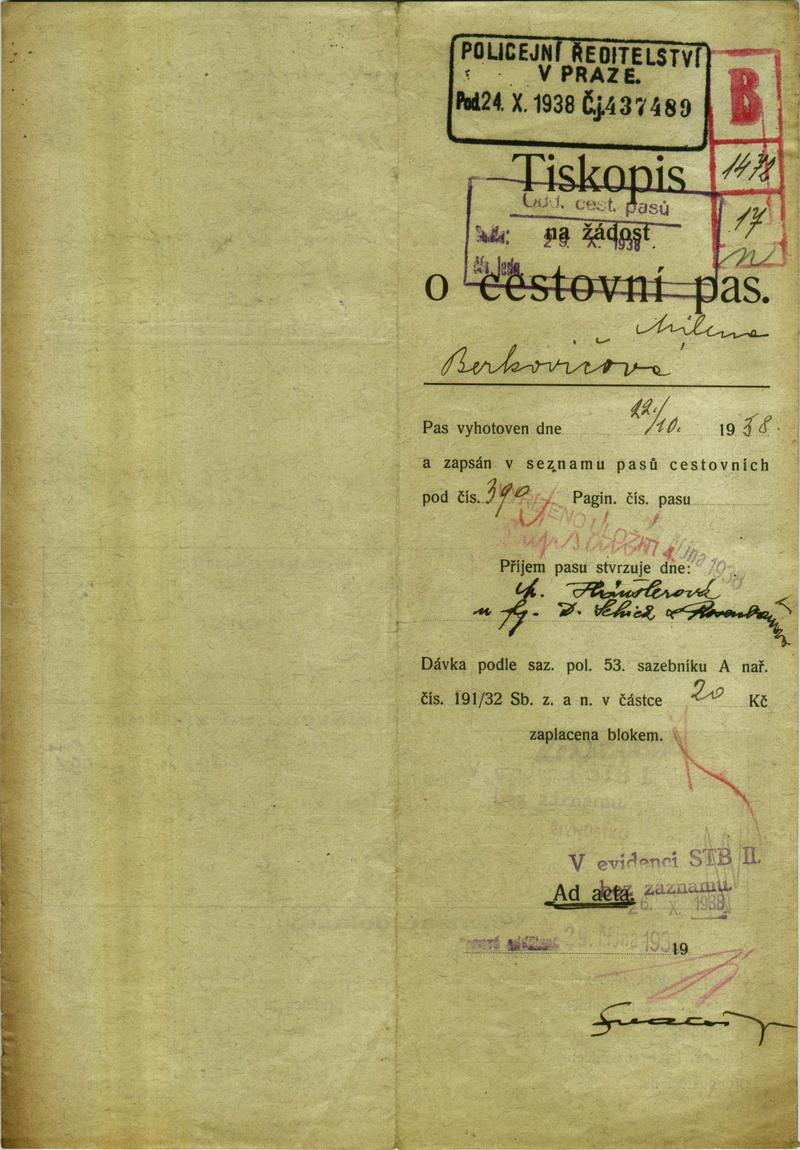 POLICEJNÍ ŘEDITELSTVÍ
V PRAZE.
Pod. 24. X. 1938 Č.j. 437489
B
1472
17
n
Tiskopis
Odd. cest. pasů
na žádost
o cestovní pas.
Milena
Berkovičová
Pas vyhotoven dne 22./10. 1938.
a zapsán v seznamu pasů cestovních
pod čís. 390 Pagin. čís. pasu
října 1938
Příjem pasu stvrzuje dne:
Dávka podle saz. pol. 53. sazebníku A nař.
čís. 191/32 Sb. z. a n. v částce 20 Kč
zaplacena blokem.
V evidenci STB II.
bez záznamu.
Ad acta.
26. X. 1938
29. října 193
19